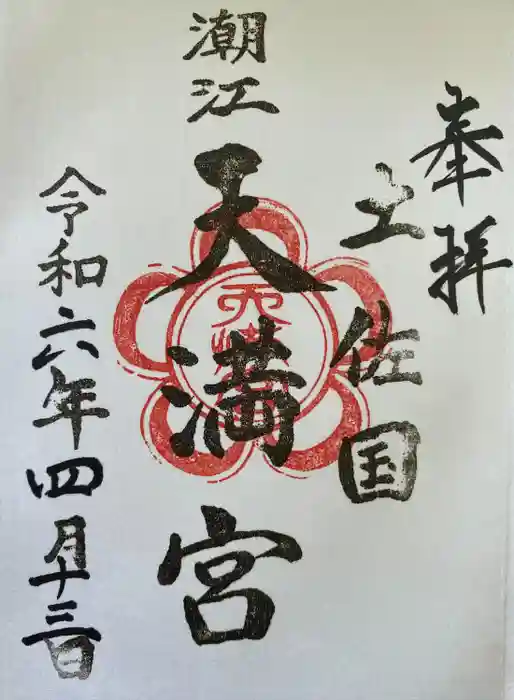 奉拝
土佐国
潮江
天満宮
令和六年四月十三日